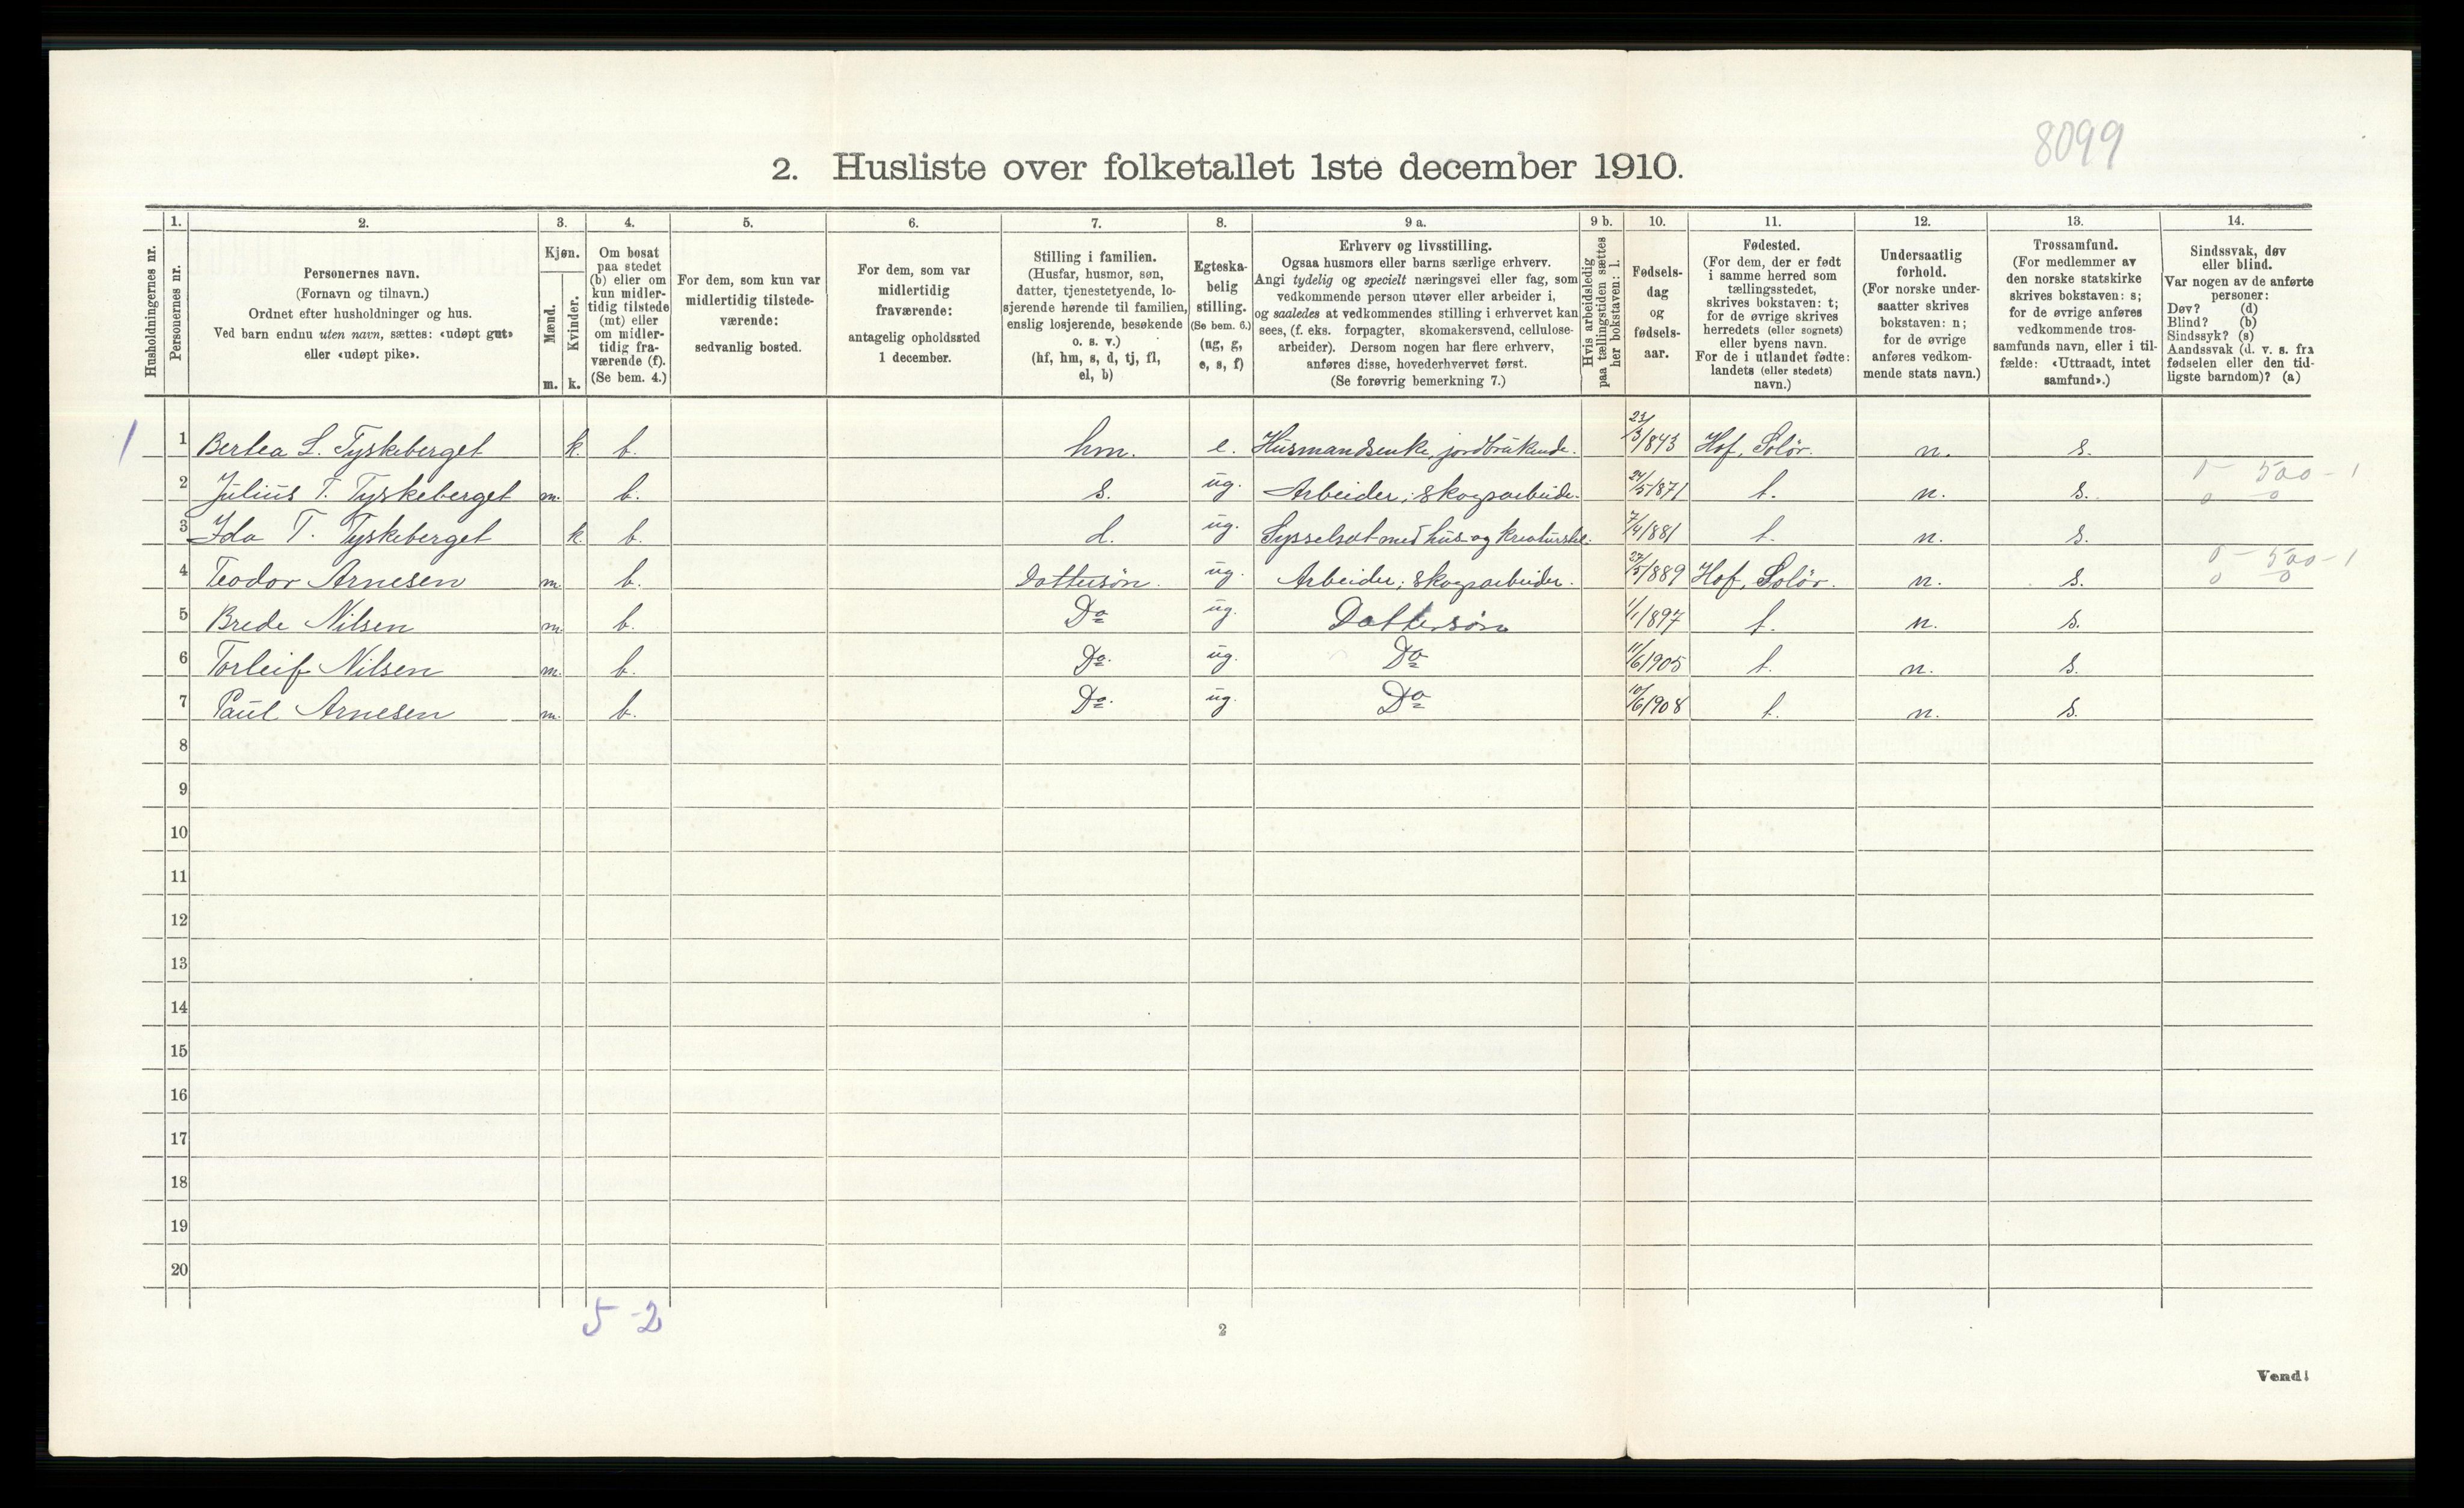 8099
2. Husliste over folketallet 1ste december 1910.
Husholdningernes nr.
1.
Personernes nr.
2.
Personernes navn.
(Fornavn og tilnavn.)
Ordnet efter husholdninger og hus.
Ved barn endnu uten navn, sættes: «udøpt gut»
eller «udøpt pike».
3.
Kjøn.
Mænd.
m.
Kvinder.
k.
4.
Om bosat
paa stedet
(b) eller om
kun midler-
tidig tilstede
(mt) eller
om midler-
tidig fra-
værende (f).
(Se bem. 4.)
5.
For dem, som kun var
midlertidig tilstede-
værende:
sedvanlig bosted.
6.
For dem, som var
midlertidig
fraværende:
antagelig opholdssted
1 december.
7.
Stilling i familien.
(Husfar, husmor, søn,
datter, tjenestetyende, lo-
sjerende hørende til familien,
enslig losjerende, besøkende
o. s. v.)
(hf, hm, s, d, tj, fl,
el, b)
8.
Egteska-
belig
stilling.
(Se bem. 6.)
(ug, g,
e, s, f)
9 a.
Erhverv og livsstilling.
Ogsaa husmors eller barns særlige erhverv.
Angi tydelig og specielt næringsvei eller fag, som
vedkommende person utøver eller arbeider i,
og saaledes at vedkommendes stilling i erhvervet kan
sees, (f. eks. forpagter, skomakersvend, cellulose-
arbeider). Dersom nogen har flere erhverv,
anføres disse, hovederhvervet først.
(Se forøvrig bemerkning 7.)
9 b.
Hvis arbeidsledig
paa tællingstiden sættes
her bokstaven: l.
10.
Fødsels-
dag
og
fødsels-
aar.
11.
Fødested.
(For dem, der er født
i samme herred som
tællingsstedet,
skrives bokstaven: t;
for de øvrige skrives
herredets (eller sognets)
eller byens navn.
For de i utlandet fødte:
landets (eller stedets)
navn.)
12.
Undersaatlig
forhold.
(For norske under-
saatter skrives
bokstaven: n;
for de øvrige
anføres vedkom-
mende stats navn.)
13.
Trossamfund.
(For medlemmer av
den norske statskirke
skrives bokstaven: s;
for de øvrige anføres
vedkommende tros-
samfunds navn, eller i til-
fælde: «Uttraadt, intet
samfund».)
14.
Sindssvak, døv
eller blind.
Var nogen av de anførte
personer:
Døv? (d)
Blind? (b)
Sindssyk? (s)
Aandssvak (d. v. s. fra
fødselen eller den tid-
ligste barndom)? (a)
1 1 Bertea L. Tyskeberget k. b. hm. e. Husmandsenke, jordbrukende. 23/3/843 Hof, Solör. n. s.
2 Julius T. Tyskeberget m. b. s. ug. Arbeider; skogsarbeide. 24/5/871 t. n. s. 0 - 500 - 1 0 0
3 Ida T. Tyskeberget k. b. d. ug. Sysselsat med hus- og kreaturstel. 7/4/881 t. n. s.
4 Teodor Arnesen m. b. Dattersön. ug. Arbeider; skogsarbeider. 27/5/889 Hof, Solör. n. s. 0 - 500 - 1 0 0
5 Brede Nilsen m. b. Do ug. Dattersön 1/1/897 t. n. s.
6 Torleif Nilsen m. b. Do. ug. Do 11/6/905 t. n. s.
7 Paul Arnesen m. b. Do. ug. Do 10/6/908 t. n. s.
8
9
10
11
12
13
14
15
16
17
18
19
20
5 - 2
2
Vend!